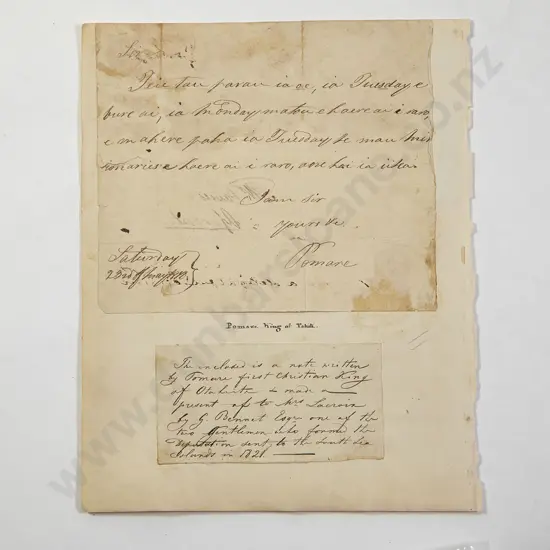 Teie tau parau ia oe, ia Tuesday e
bure ai, ia Monday matou e haere ai i raro,
e mahere paha ia Tuesday te mau mis
ionaries e haere ai i raro,
I am Sir
yours &c.
Pomare
Saturday
23rd
Pomare King of Tahiti.
The enclosed is a note written
by Pomare first Christian King
of Otaheite - made a
present of to Mrs Lacroix
by G. Bennet Esqr one of the
two Gentlemen who formed the
deputation sent to the South Sea
Islands in 1821.